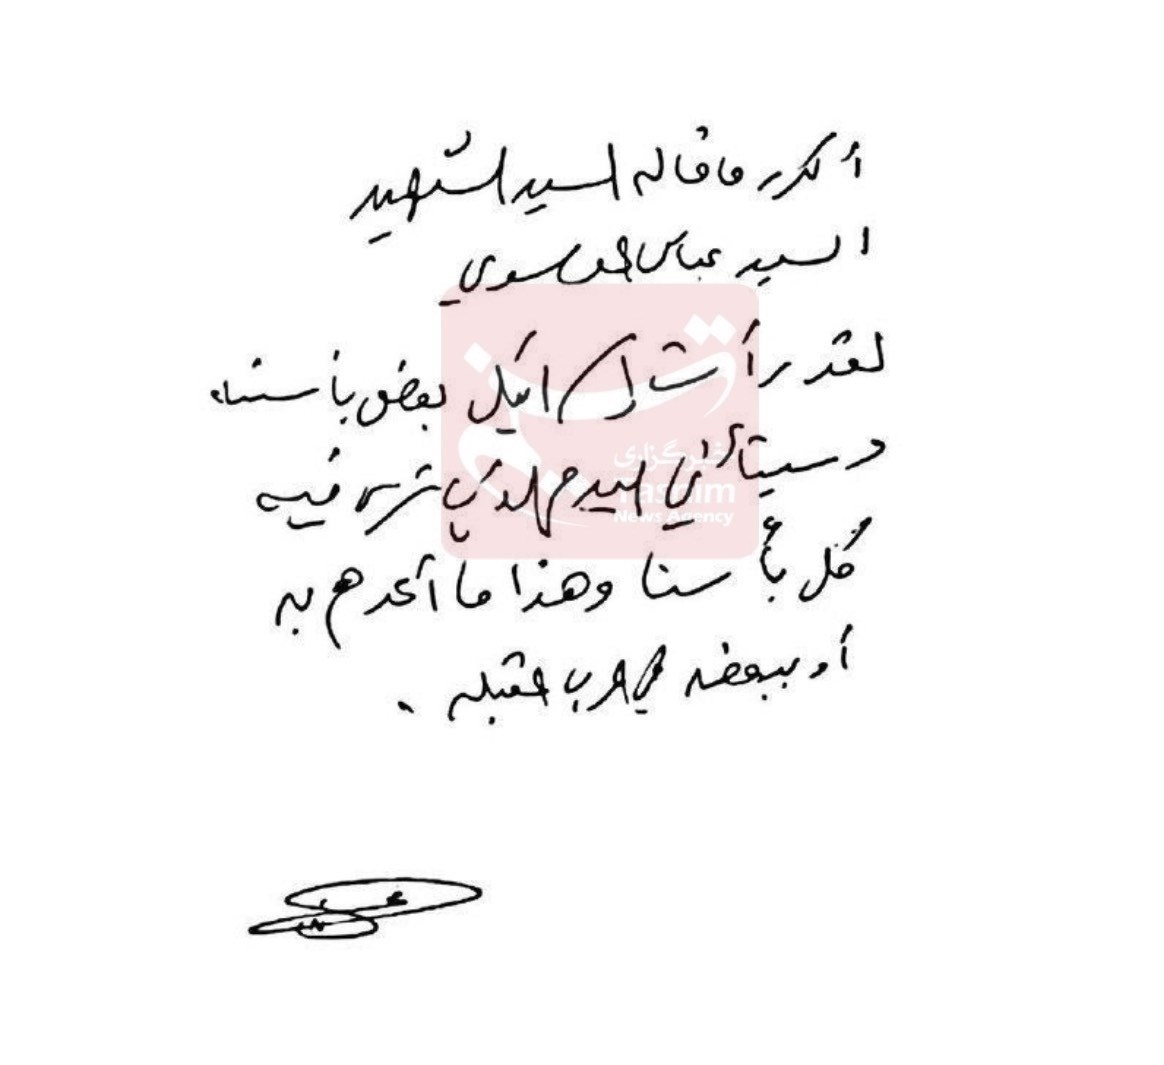 أكرر ما قاله السيد الشهيد
السيد عباس الموسوي
لقد رأت إسرائيل بعض بأسنا،
وسيأتي اليوم الذي ترى فيه
كل بأسنا وهذا ما أعدهم به
أو ببعضه في الحرب المقبلة.
خبرگزاری
Tasnim
News Agency